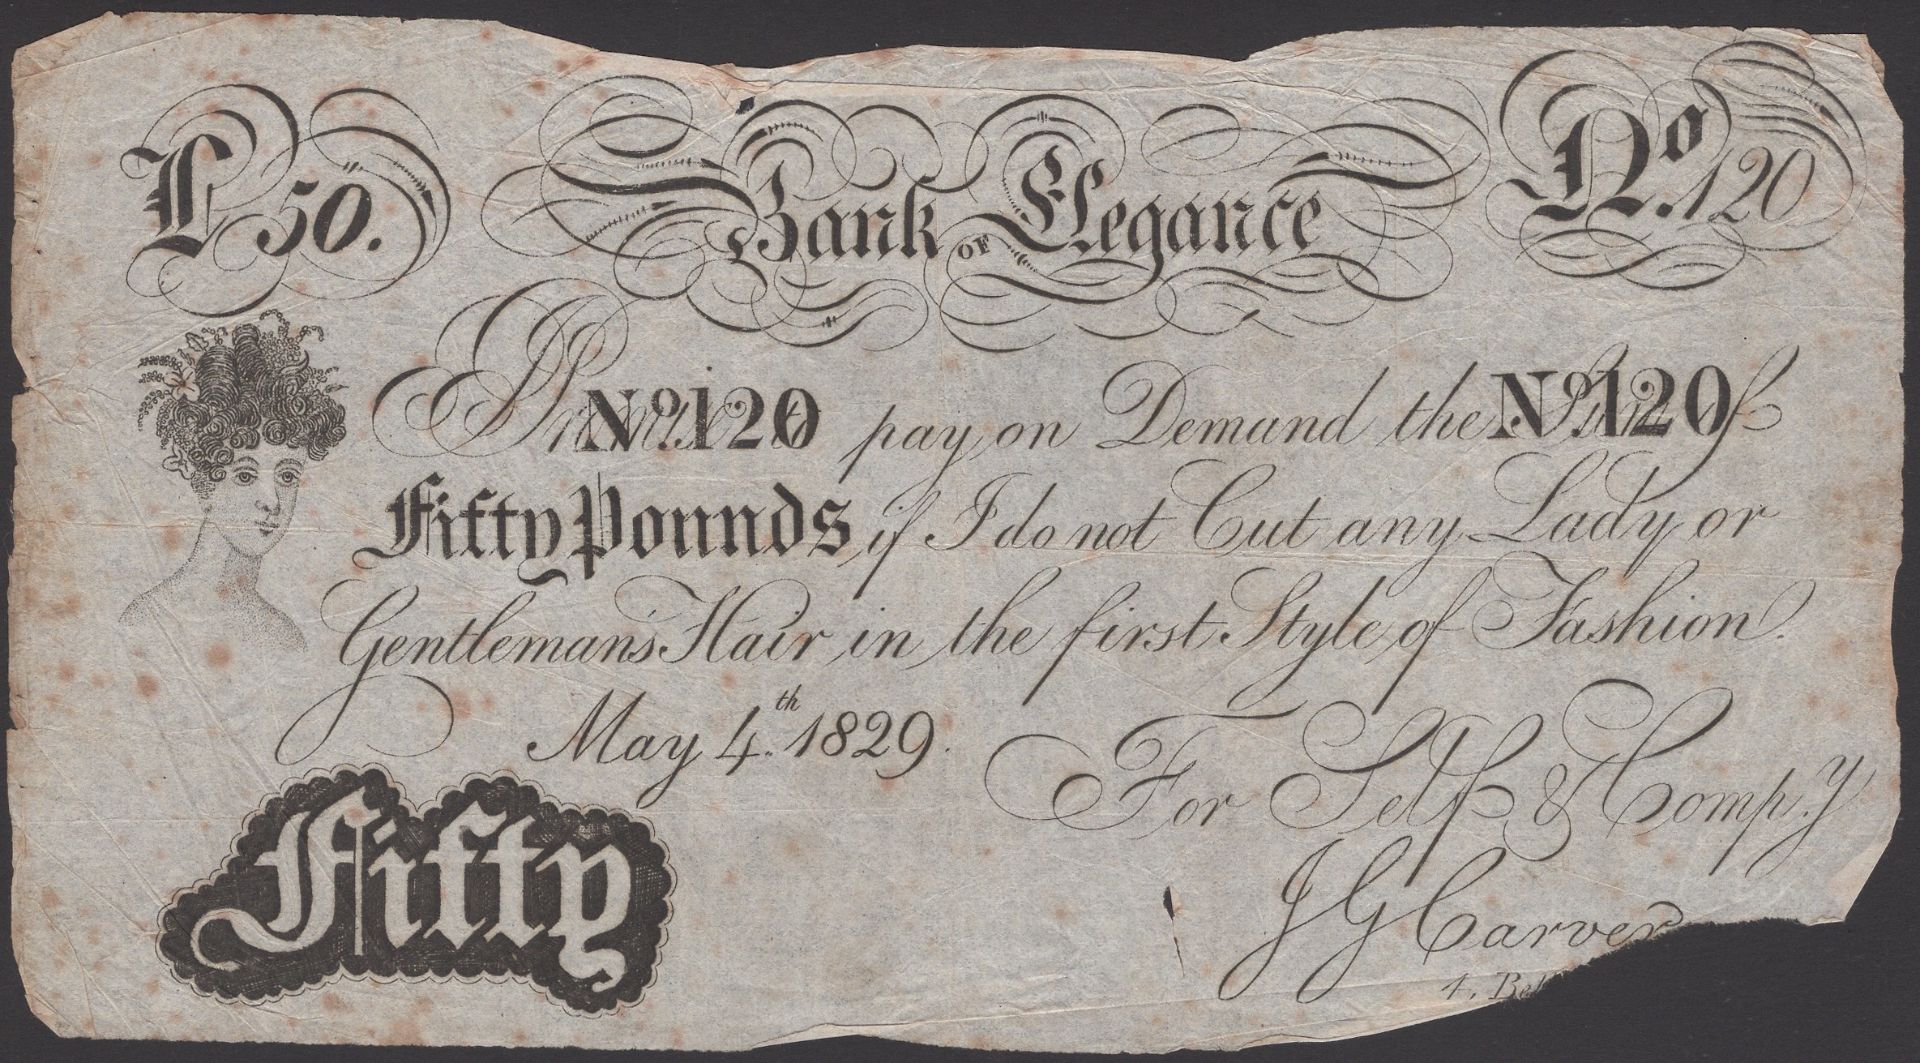 £50. Bank OF Elegance No. 120
I Promise to No. 120 pay on Demand the Sum of No. 120
Fifty Pounds if I do not Cut any Lady or
Gentleman's Hair in the first Style of Fashion.
May 4th. 1829.
For Self & Comp.y
Fifty
J G Carver
4,